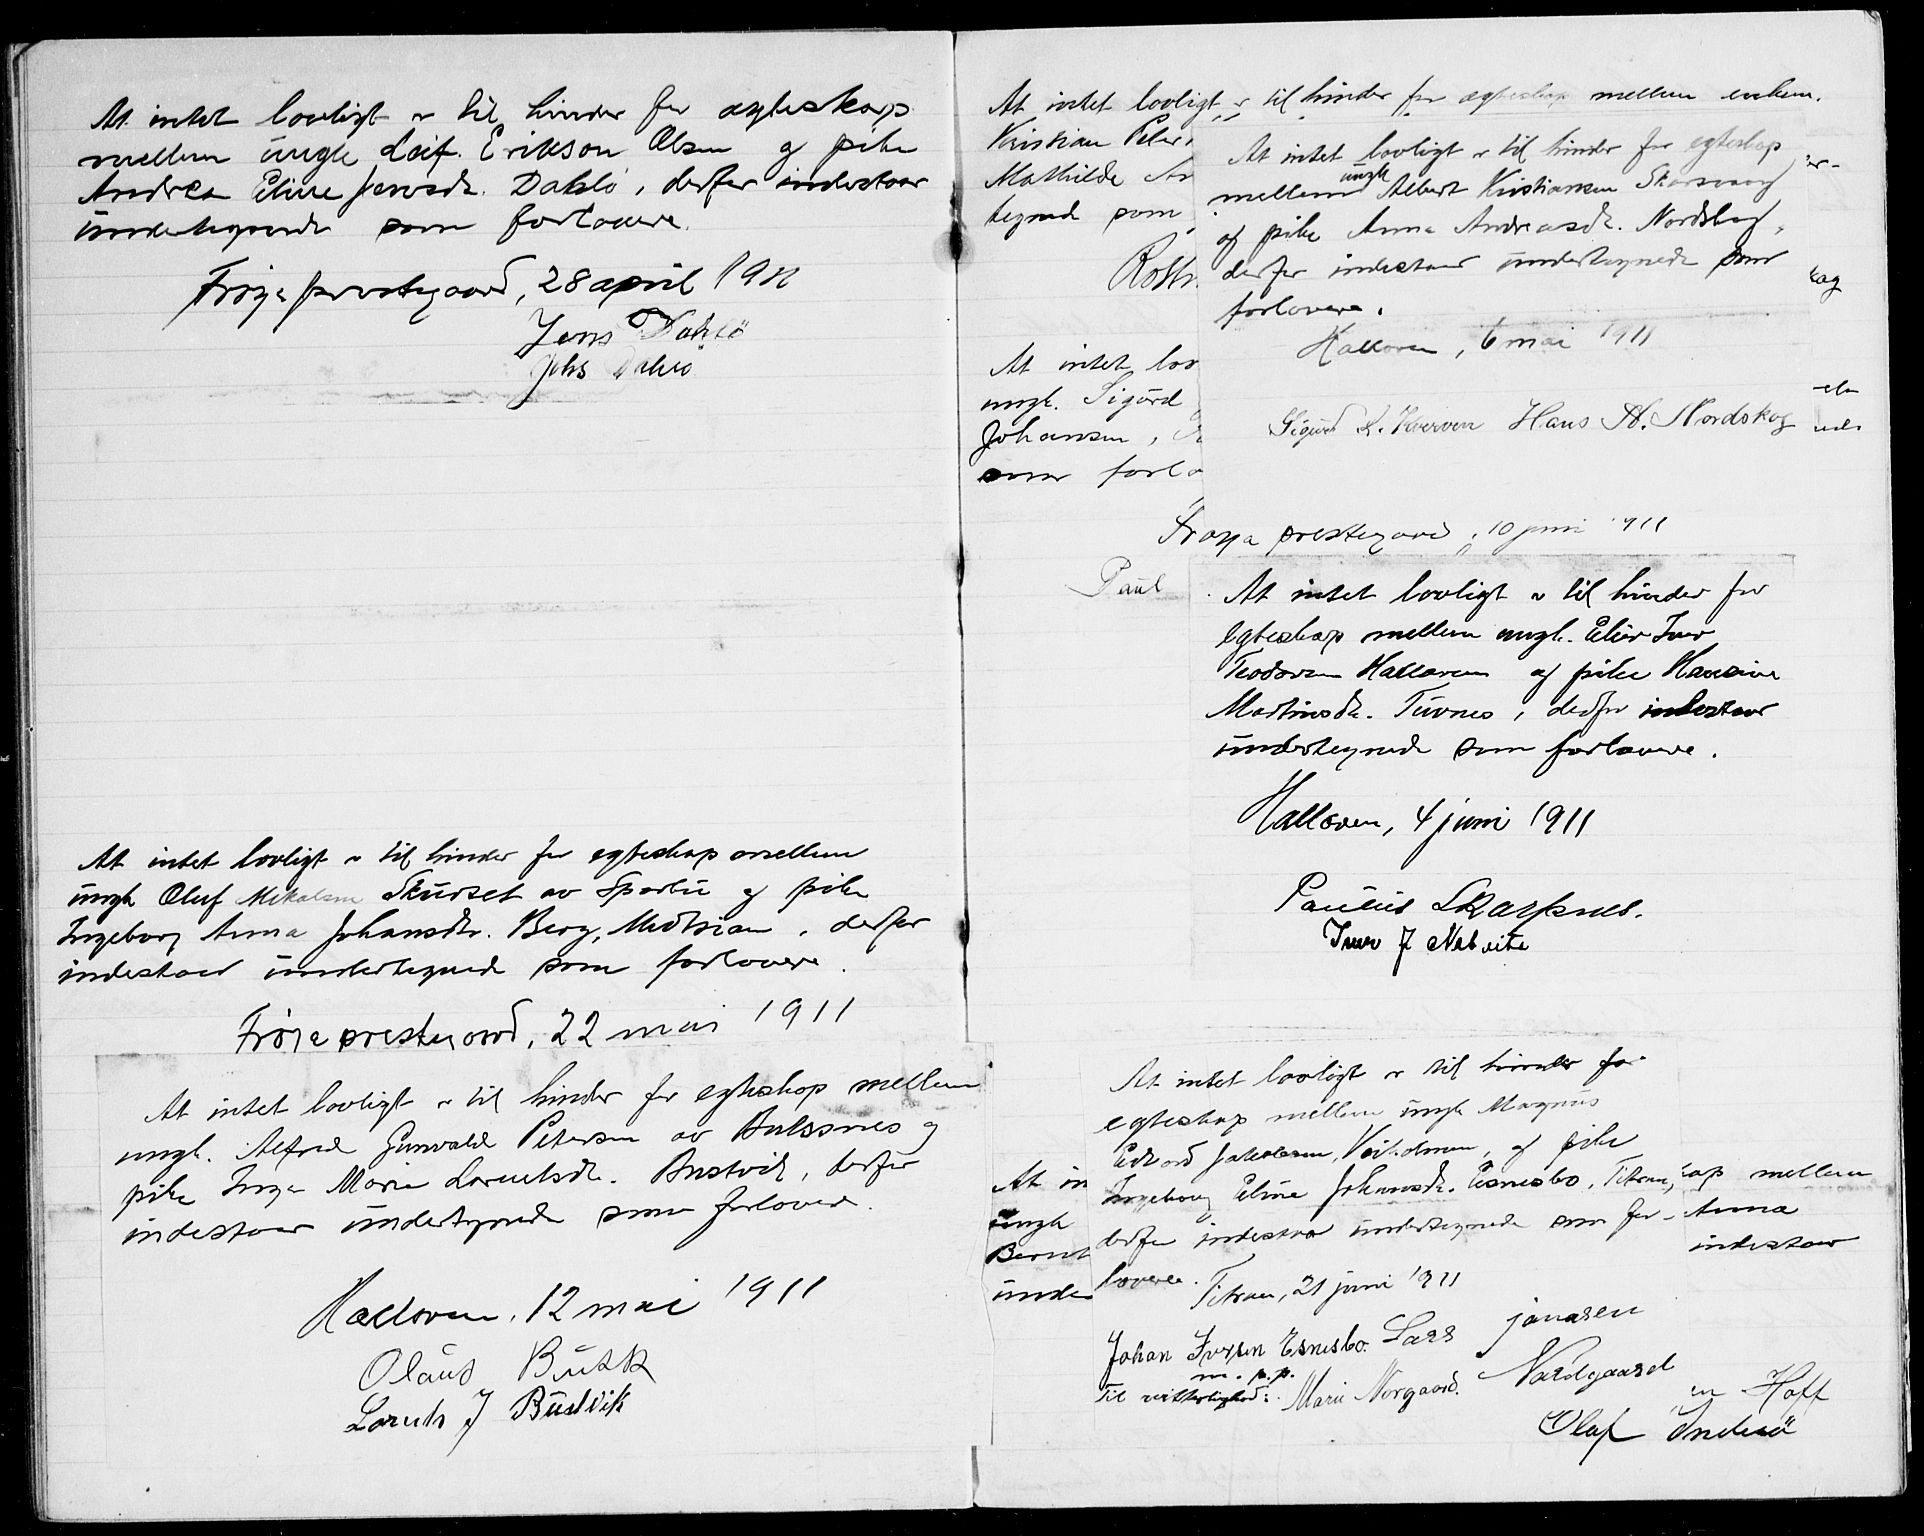 At intet lovligt er til hinder for ægteskap
mellem ungk. Leif Erikson Olsen og pike
Andrea Eline Jensdtr. Dahlö, derfor indestaar
undertegnede som forlovere.
Frøya prestegaard, 28 april 1911
Jens Dahlö
Johs Dahlö
At intet lovligt er til hinder for egteskap mellem
ungk Oluf Mikalsen Skudset av Sparbu og pike
Ingeborg Anna Johansdtr. Berg, , derfor
indestaar undertegnede som forlovere.
Frøya prestegaard, 22 mai 1911
At intet lovligt er til hinder for egteskap mellem
ungk. Alfred Gunvald Petersen av og
pike Inga Marie Lorentsdtr. Bustvik, derfor
indestaar undertegnede som forlovere.
Halloren, 12 mai 1911
Olaus
Lorents J Bustvik
At intet lovligt er til hinder for egteskap mellem enkem.
Kristian Peter
Mathilde
tegnede som
At intet lovligt er til hinder for egteskap
mellem ungk Albert Kristiansen Skarsvaag
og pike Anna Andreasdtr. Nordskag,
derfor indestaar undertegnede som
forlovere.
Halloren, 6 mai 1911
Sigurd L. Kverven Hans A. Nordskog
At intet lov
ungk. Sigurd
Johansen,
som forlo
Frøya prestegaard, 10 juni 1911
Paul
At intet lovligt er til hinder for
egteskap mellem ungk. Iver
Teodorsen Halloren og pike Hansine
Martinsdtr. Tuvnes, derfor indestaar
undertegnede som forlovere.
Halloren, 4 juni 1911
Paulus Skarpnes.
Iver J
At intet lovligt er til hinder for
egteskap mellem ungk Magnus
Edvard Jakobsen, og pike
Ingeborg Eline Johansdtr. Esnesbo, Titran,
derfor indestaar undertegnede som for-
lovere.
Titran, 21 juni 1911
Johan Iversen Esnesbo. Lars Jonasen
m. p. p. Nordgaard
Til vitterlighed: Marie Norgaard.
At in
ungk
Bernt
under
kap mellem
Anna
indestaar
en Hoff
Olaf